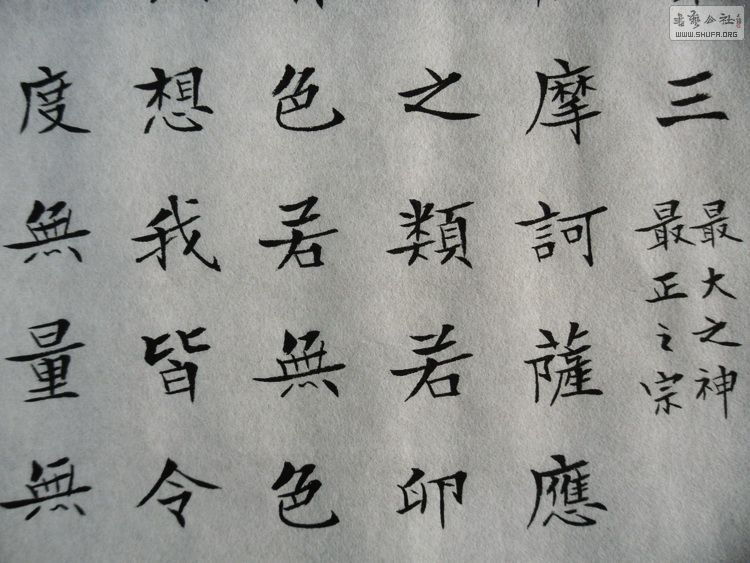 三
最大之神
最正之宗
摩訶薩應
之類若卵
色若無色
想我皆令
度無量無
书艺公社
WWW.SHUFA.ORG